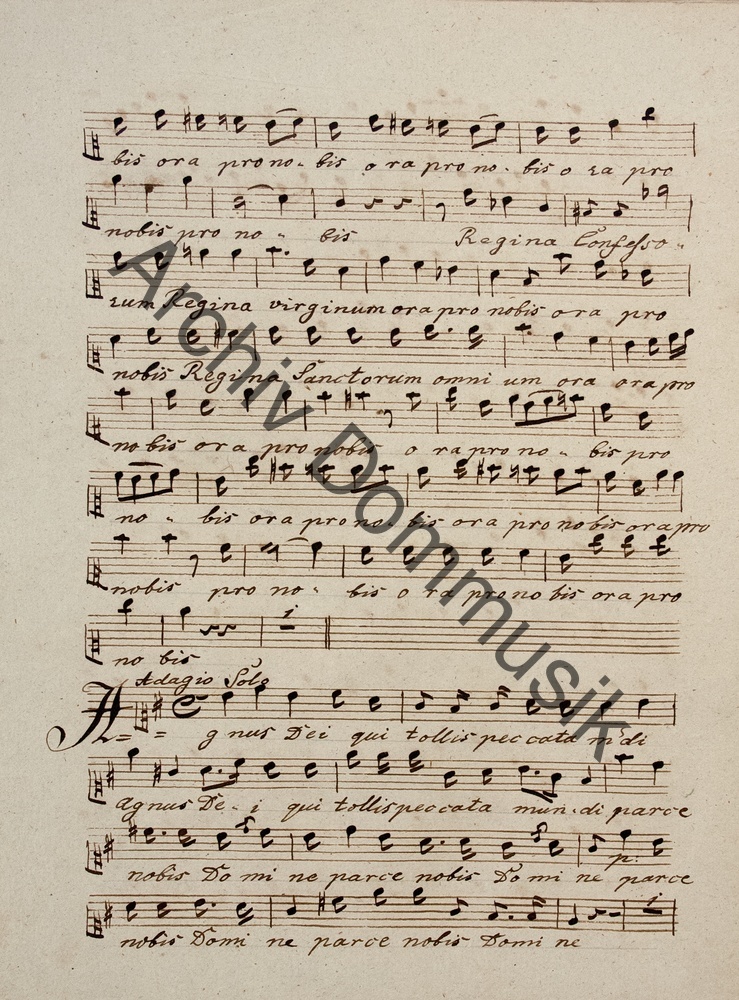 bis ora pro no- bis ora pro no- bis o ra pro
nobis pro no- bis Regina Confesso-
rum Regina virginum ora pro nobis ora pro
nobis Regina Sanctorum omni um ora ora pro
nobis ora pro nobis o ra pro no- bis pro
no- bis ora pro no- bis ora pro nobis ora pro
nobis pro no- bis o ra pro no bis ora pro
1
no bis
Adagio Solo
A= = gnus Dei qui tollis peccata mdi
agnus De- i qui tollis peccata mun-di parce
p:
nobis Do mi ne parce nobis Do mi ne parce
1.
nobis Domi ne parce nobis Domi ne
Archiv Dommusik